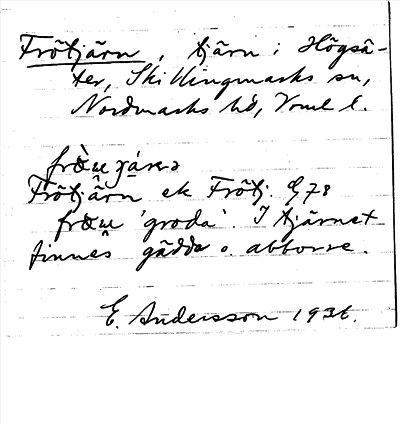 Frötjärn, tjärn i Högsä-
ter, Skillingmarks sn,
Nordmarks hd, Vrml l.
Frötjärn ek Frötj. G78
'groda'. I tjärnet
finnes gädda o. abborre.
E. Andersson 1936.